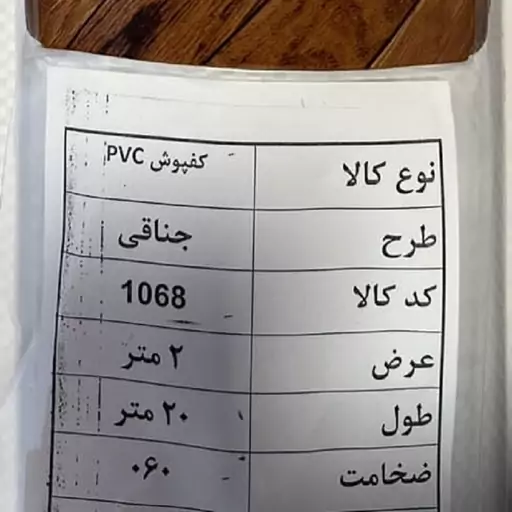 نوع کالا کفپوش PVC
طرح جناقی
کد کالا 1068
عرض ۲ متر
طول ۲۰ متر
ضخامت ۰۶۰